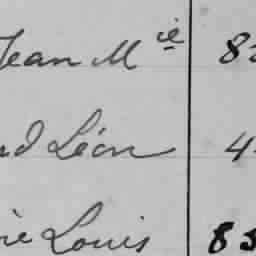 Jean Mie 8
rd Léon 4
re Louis 85